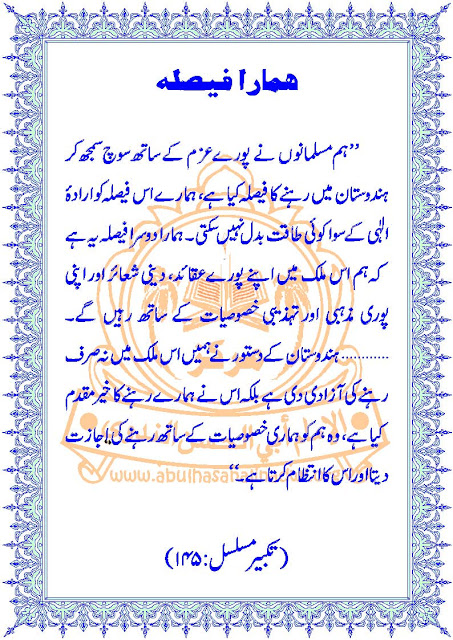 ہمارا فیصلہ
”ہم مسلمانوں نے پورے عزم کے ساتھ سوچ سمجھ کر
ہندوستان میں رہنے کا فیصلہ کیا ہے، ہمارے اس فیصلہ کو ارادۂ
الٰہی کے سوا کوئی طاقت بدل نہیں سکتی۔ ہمارا دوسرا فیصلہ یہ ہے
کہ ہم اس ملک میں اپنے پورے عقائد، دینی شعائر اور اپنی
پوری مذہبی اور تہذیبی خصوصیات کے ساتھ رہیں گے۔
............ ہندوستان کے دستور نے ہمیں اس ملک میں نہ صرف
رہنے کی آزادی دی ہے بلکہ اس نے ہمارے رہنے کا خیر مقدم
کیا ہے، وہ ہم کو ہماری خصوصیات کے ساتھ رہنے کی اجازت
دیتا اور اس کا انتظام کرتا ہے۔“
(تکبیر مسلسل: ۱۴۵)